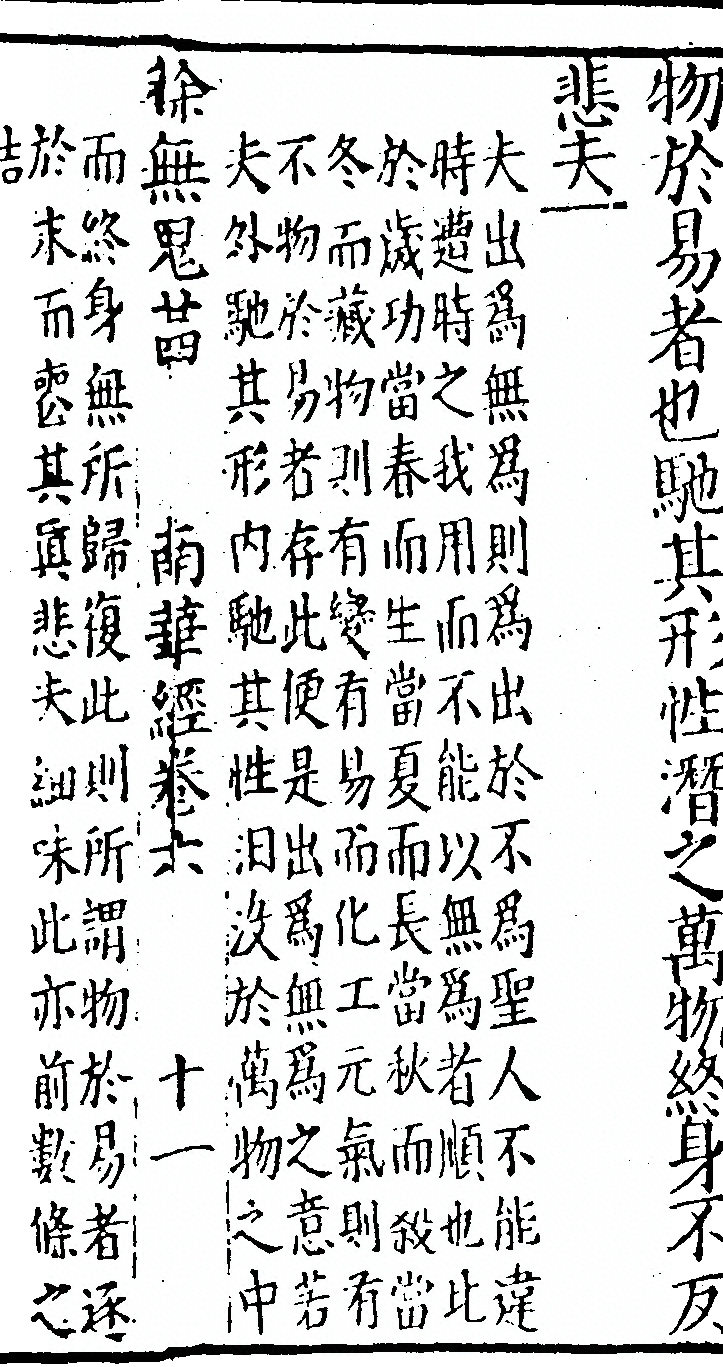 物於易者也馳其形性潛之萬物終身不反
悲夫
夫出爲無爲則爲出於不爲聖人不能違
時遭時之我用而不能以無爲者順也此
於歲功當春而生當夏而長當秋而殺當
冬而藏物則有變有易而化工元氣則有
不物於易者存此便是出爲無爲之意若
夫外馳其形内馳其性汩没於萬物之中
徐無鬼廿四　南華經卷六　十一
而終身無所歸復此則所謂物於易者逐
於末而喪其眞悲夫細味此亦前數條之
結